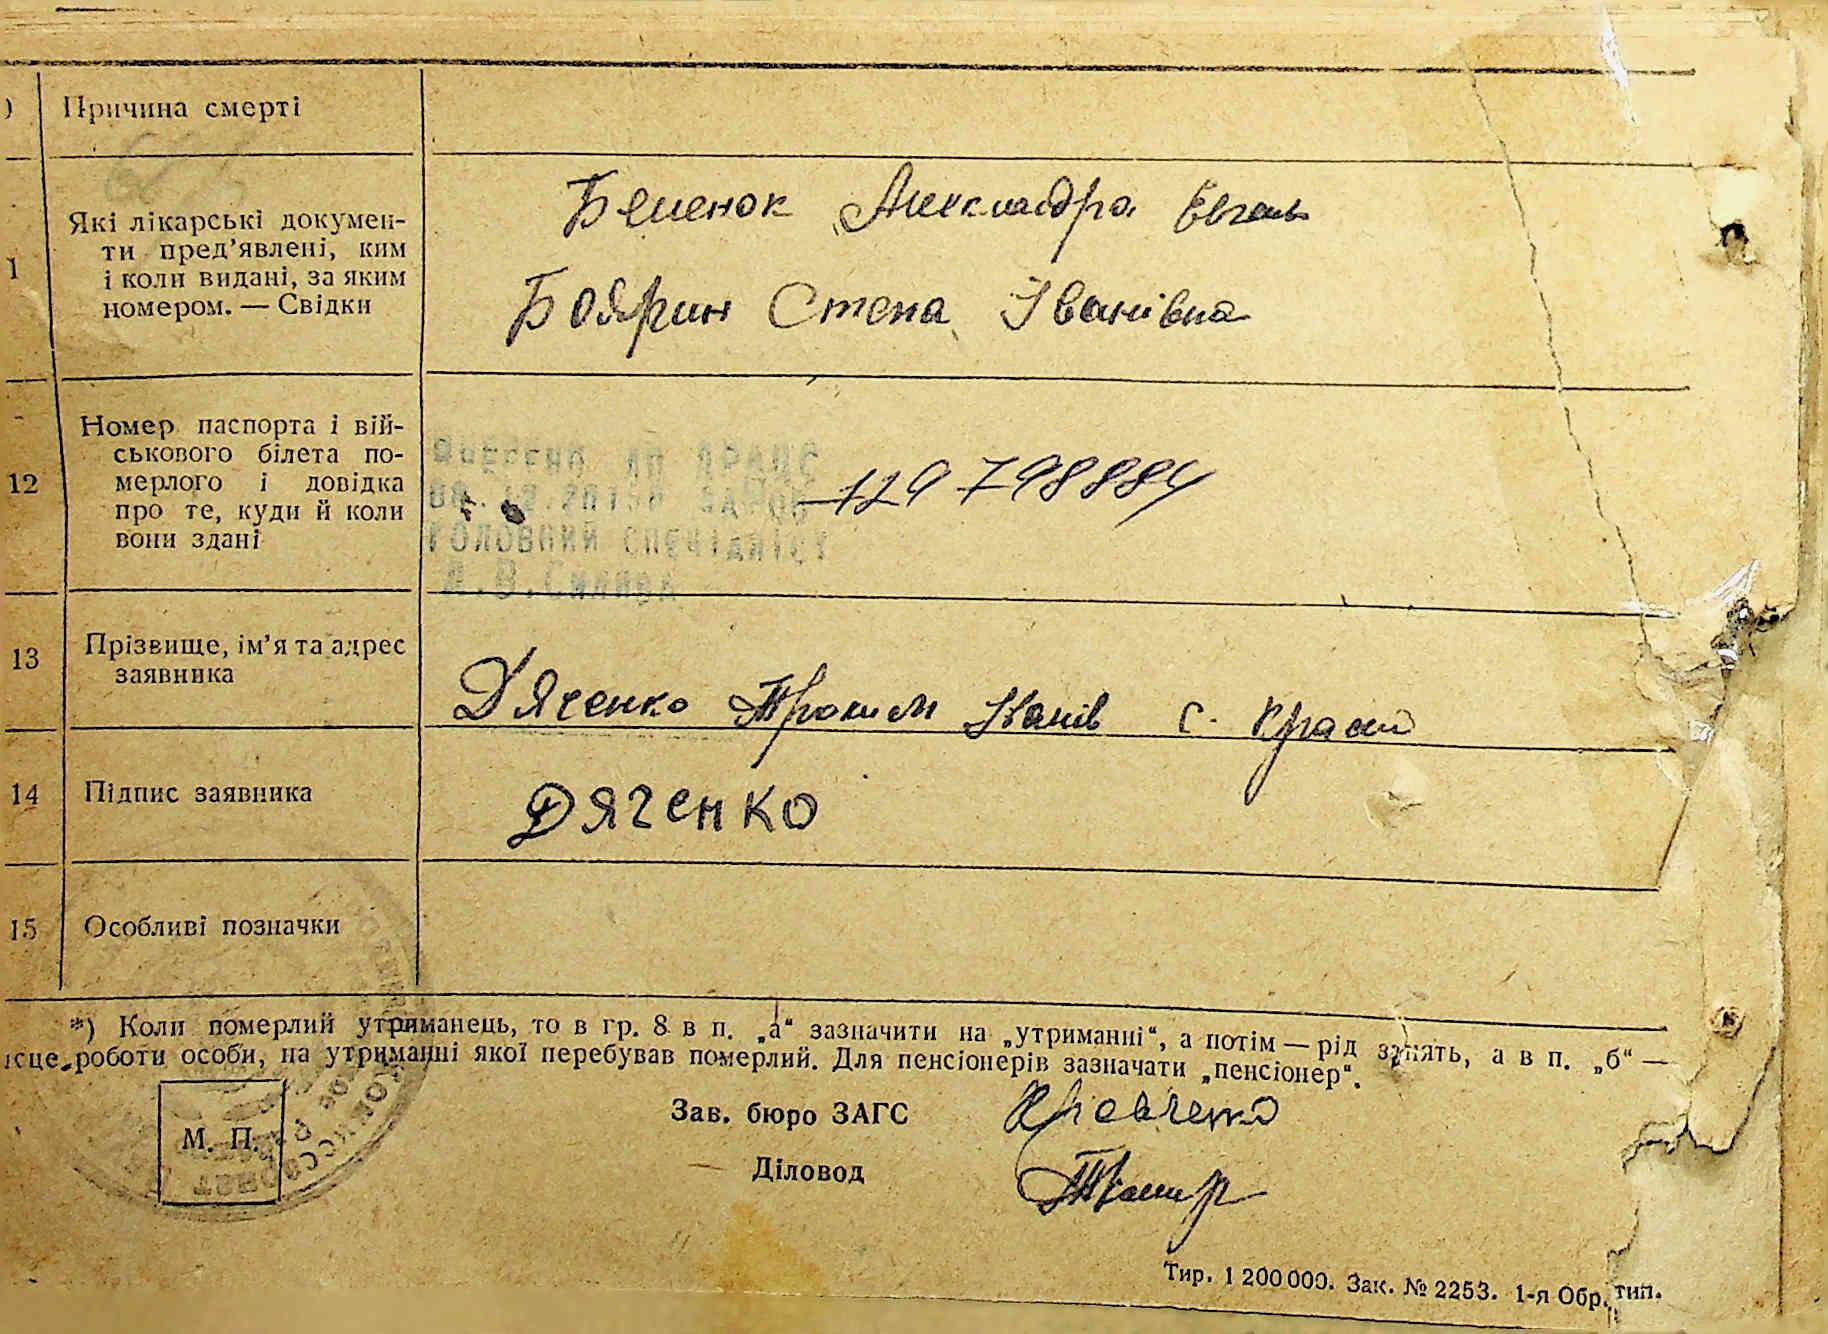 ) Причина смерті
1 Які лікарські докумен-
ти пред’явлені, ким
і коли видані, за яким
номером. — Свідки
Александра
Боярин Степа Іванівна
12 Номер паспорта і вій-
ськового білета по-
мерлого і довідка
про те, куди й коли
вони здані
головний спеціаліст
129798884
13 Прізвище, ім’я та адрес
заявника
Дяченко Трохим Іванів с.
14 Підпис заявника
Дяченко
15 Особливі позначки
*) Коли померлий утриманець, то в гр. 8 в п. „а“ зазначити на „утриманні“, а потім — рід занять, а в п. „б“ —
ісце роботи особи, на утриманні якої перебував померлий. Для пенсіонерів зазначати „пенсіонер“.
М. П.
Зав. бюро ЗАГС
Діловод
Тир. 1 200 000. Зак. № 2253. 1-я Обр. тип.